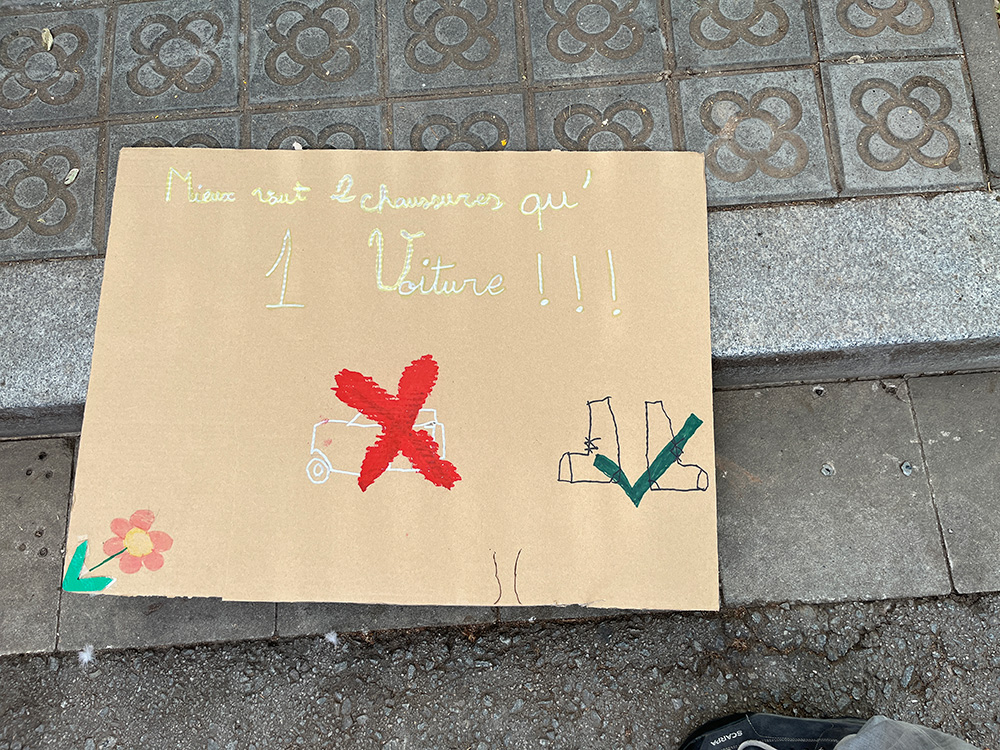 Mieux vaut 2 chaussures qu'
1 Voiture !!!
SCARPA